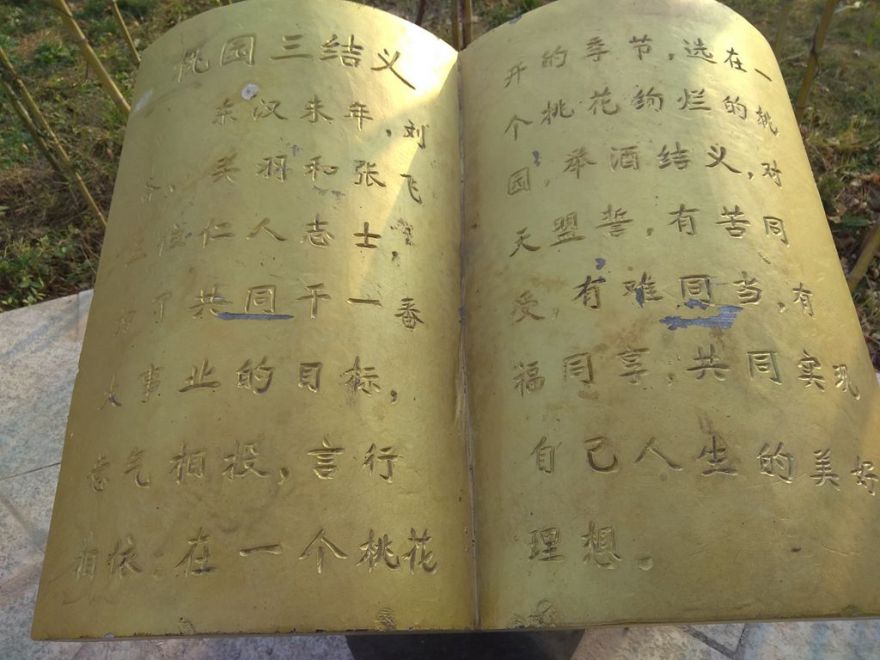 桃园三结义
东汉末年,刘
备、关羽和张飞
三位仁人志士,
为了共同干一番
大事业的目标,
意气相投,言行
相依,在一个桃花
开的季节,选在一
个桃花绚烂的桃
园,举酒结义,对
天盟誓,有苦同
受,有难同当,有
福同享,共同实现
自己人生的美好
理想。